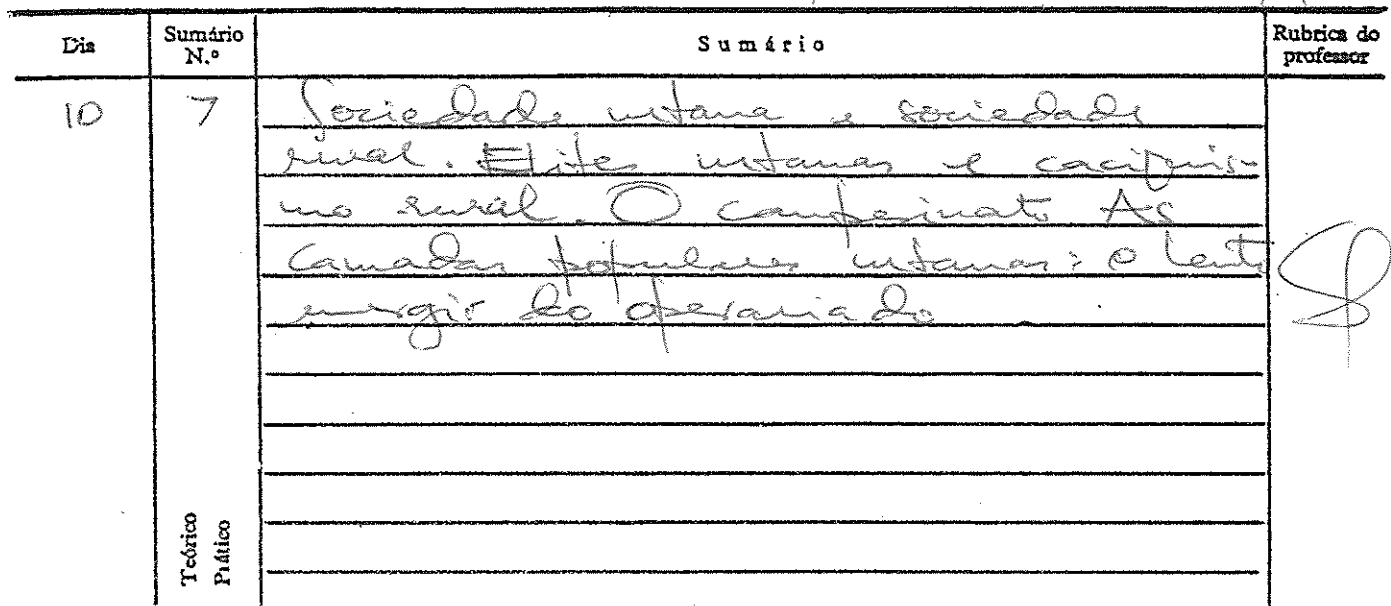 Dia Sumário N.º Sumário Rubrica do professor
10 7 Sociedade urbana e sociedade
rural. Elites urbanas e caciquis-
mo rural. O campesinato As
camadas populares urbanas: o lento
emergir do operariado
Teórico
Prático